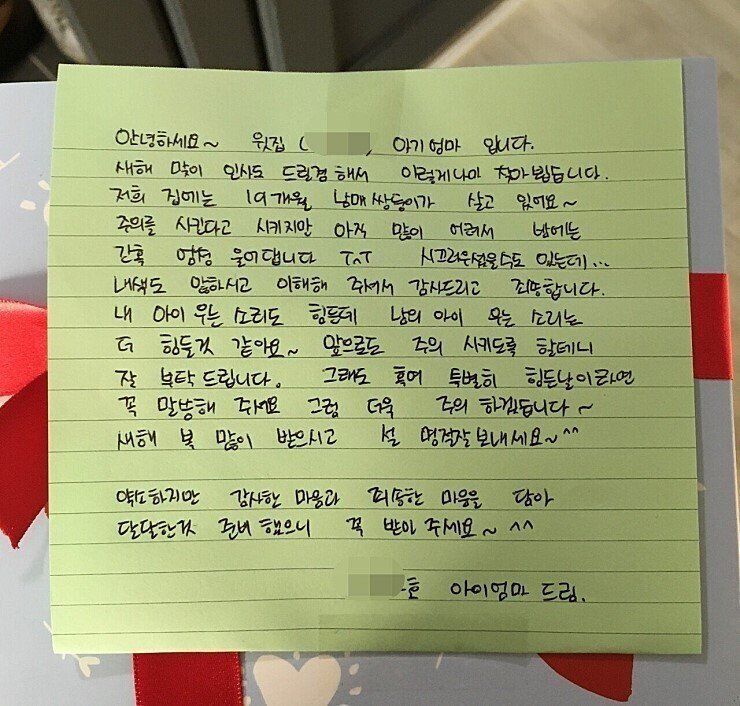 안녕하세요~ 윗집 ( ) 아기엄마 입니다.
새해 맞이 인사도 드릴겸 해서 이렇게나마 찾아뵙습니다.
저희 집에는 19개월 남매쌍둥이가 살고 있어요~
주의를 시킨다고 시키지만 아직 많이 어려서 밤에는
간혹 엉엉 울어댑니다 ㅜㅅㅜ 시끄러우셨을수도 있는데...
내색도 않하시고 이해해 주셔서 감사드리고 죄송합니다.
내 아이 우는 소리도 힘든데 남의 아이 우는 소리는
더 힘들것 같아요~ 앞으로도 주의 시키도록 할테니
잘 부탁드립니다. 그래도 혹여 특별히 힘든날이라면
꼭 말씀해 주세요 그럼 더욱 주의 하겠습니다~
새해 복 많이 받으시고 설 명절잘보내세요~^^
약소하지만 감사한 마음과 죄송한 마음을 담아
달달한것 준비 했으니 꼭 받아 주세요~ ^^
호 아이엄마 드림.